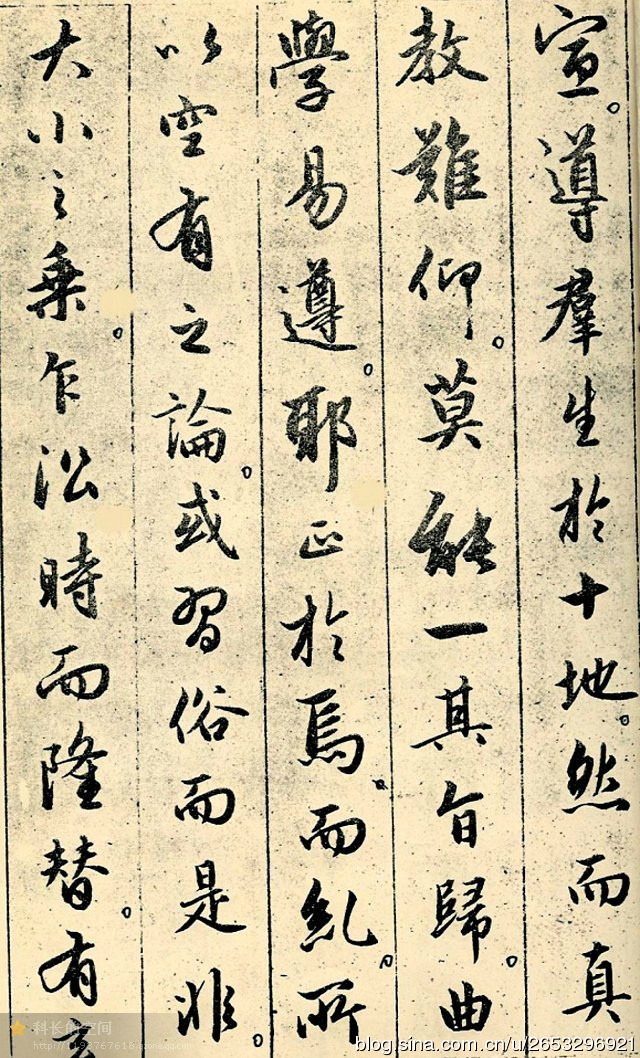 宣。導羣生於十地。然而真
教難仰。莫能一其旨歸。曲
學易遵。耶正於焉而糺。所
以空有之論。或習俗而是非。
大小之乗。乍沿時而隆替。有玄
科长的空间
blog.sina.com.cn/u/2653296921